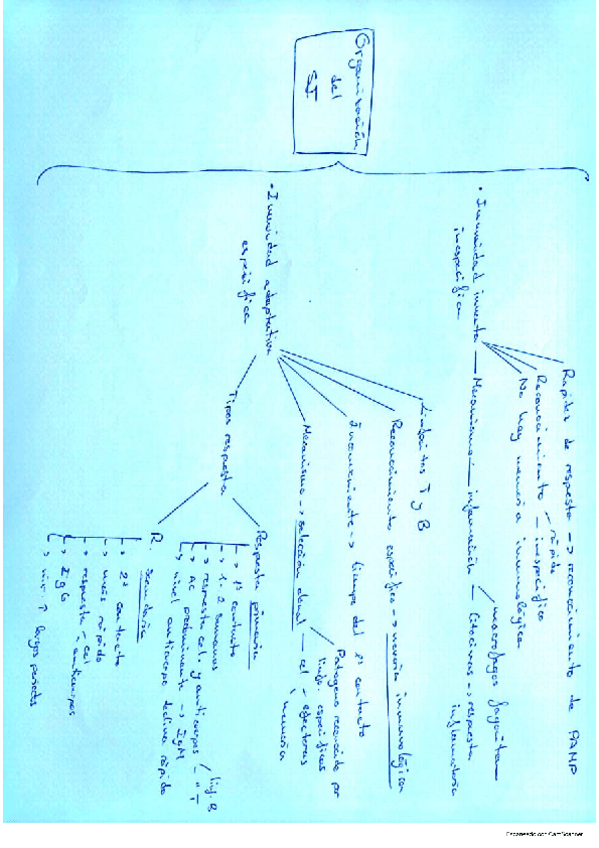 Organización
del
S.I.
· Inmunidad innata
inespecífica
Rapidez de respuesta -> reconocimiento de PAMP
Reconocimiento - rápido
- inespecífico
No hay memoria inmunológica
Mecanismo - inflamación
macrófagos fagocitan
citocinas -> respuesta
inflamatoria
· Inmunidad adaptativa
específica
Linfocitos T y B
Reconocimiento específico -> memoria inmunológica
Inconveniente -> tiempo del 1º contacto
Mecanismo -> selección clonal
Patógeno reconocido por
linfo. específicos
cel - efectoras
memoria
Tipos respuesta
Respuesta primaria
-> 1º contacto
-> 1-2 semanas
-> respuesta cel. y anticuerpos
linf. B
" T
-> AC predominante -> IgM
-> nivel anticuerpo declina rápido
R. Secundaria
-> 2º contacto
-> más rápido
-> respuesta - cel
- anticuerpos
-> IgG
-> niv. ↑ largos periodos
Escaneado con CamScanner